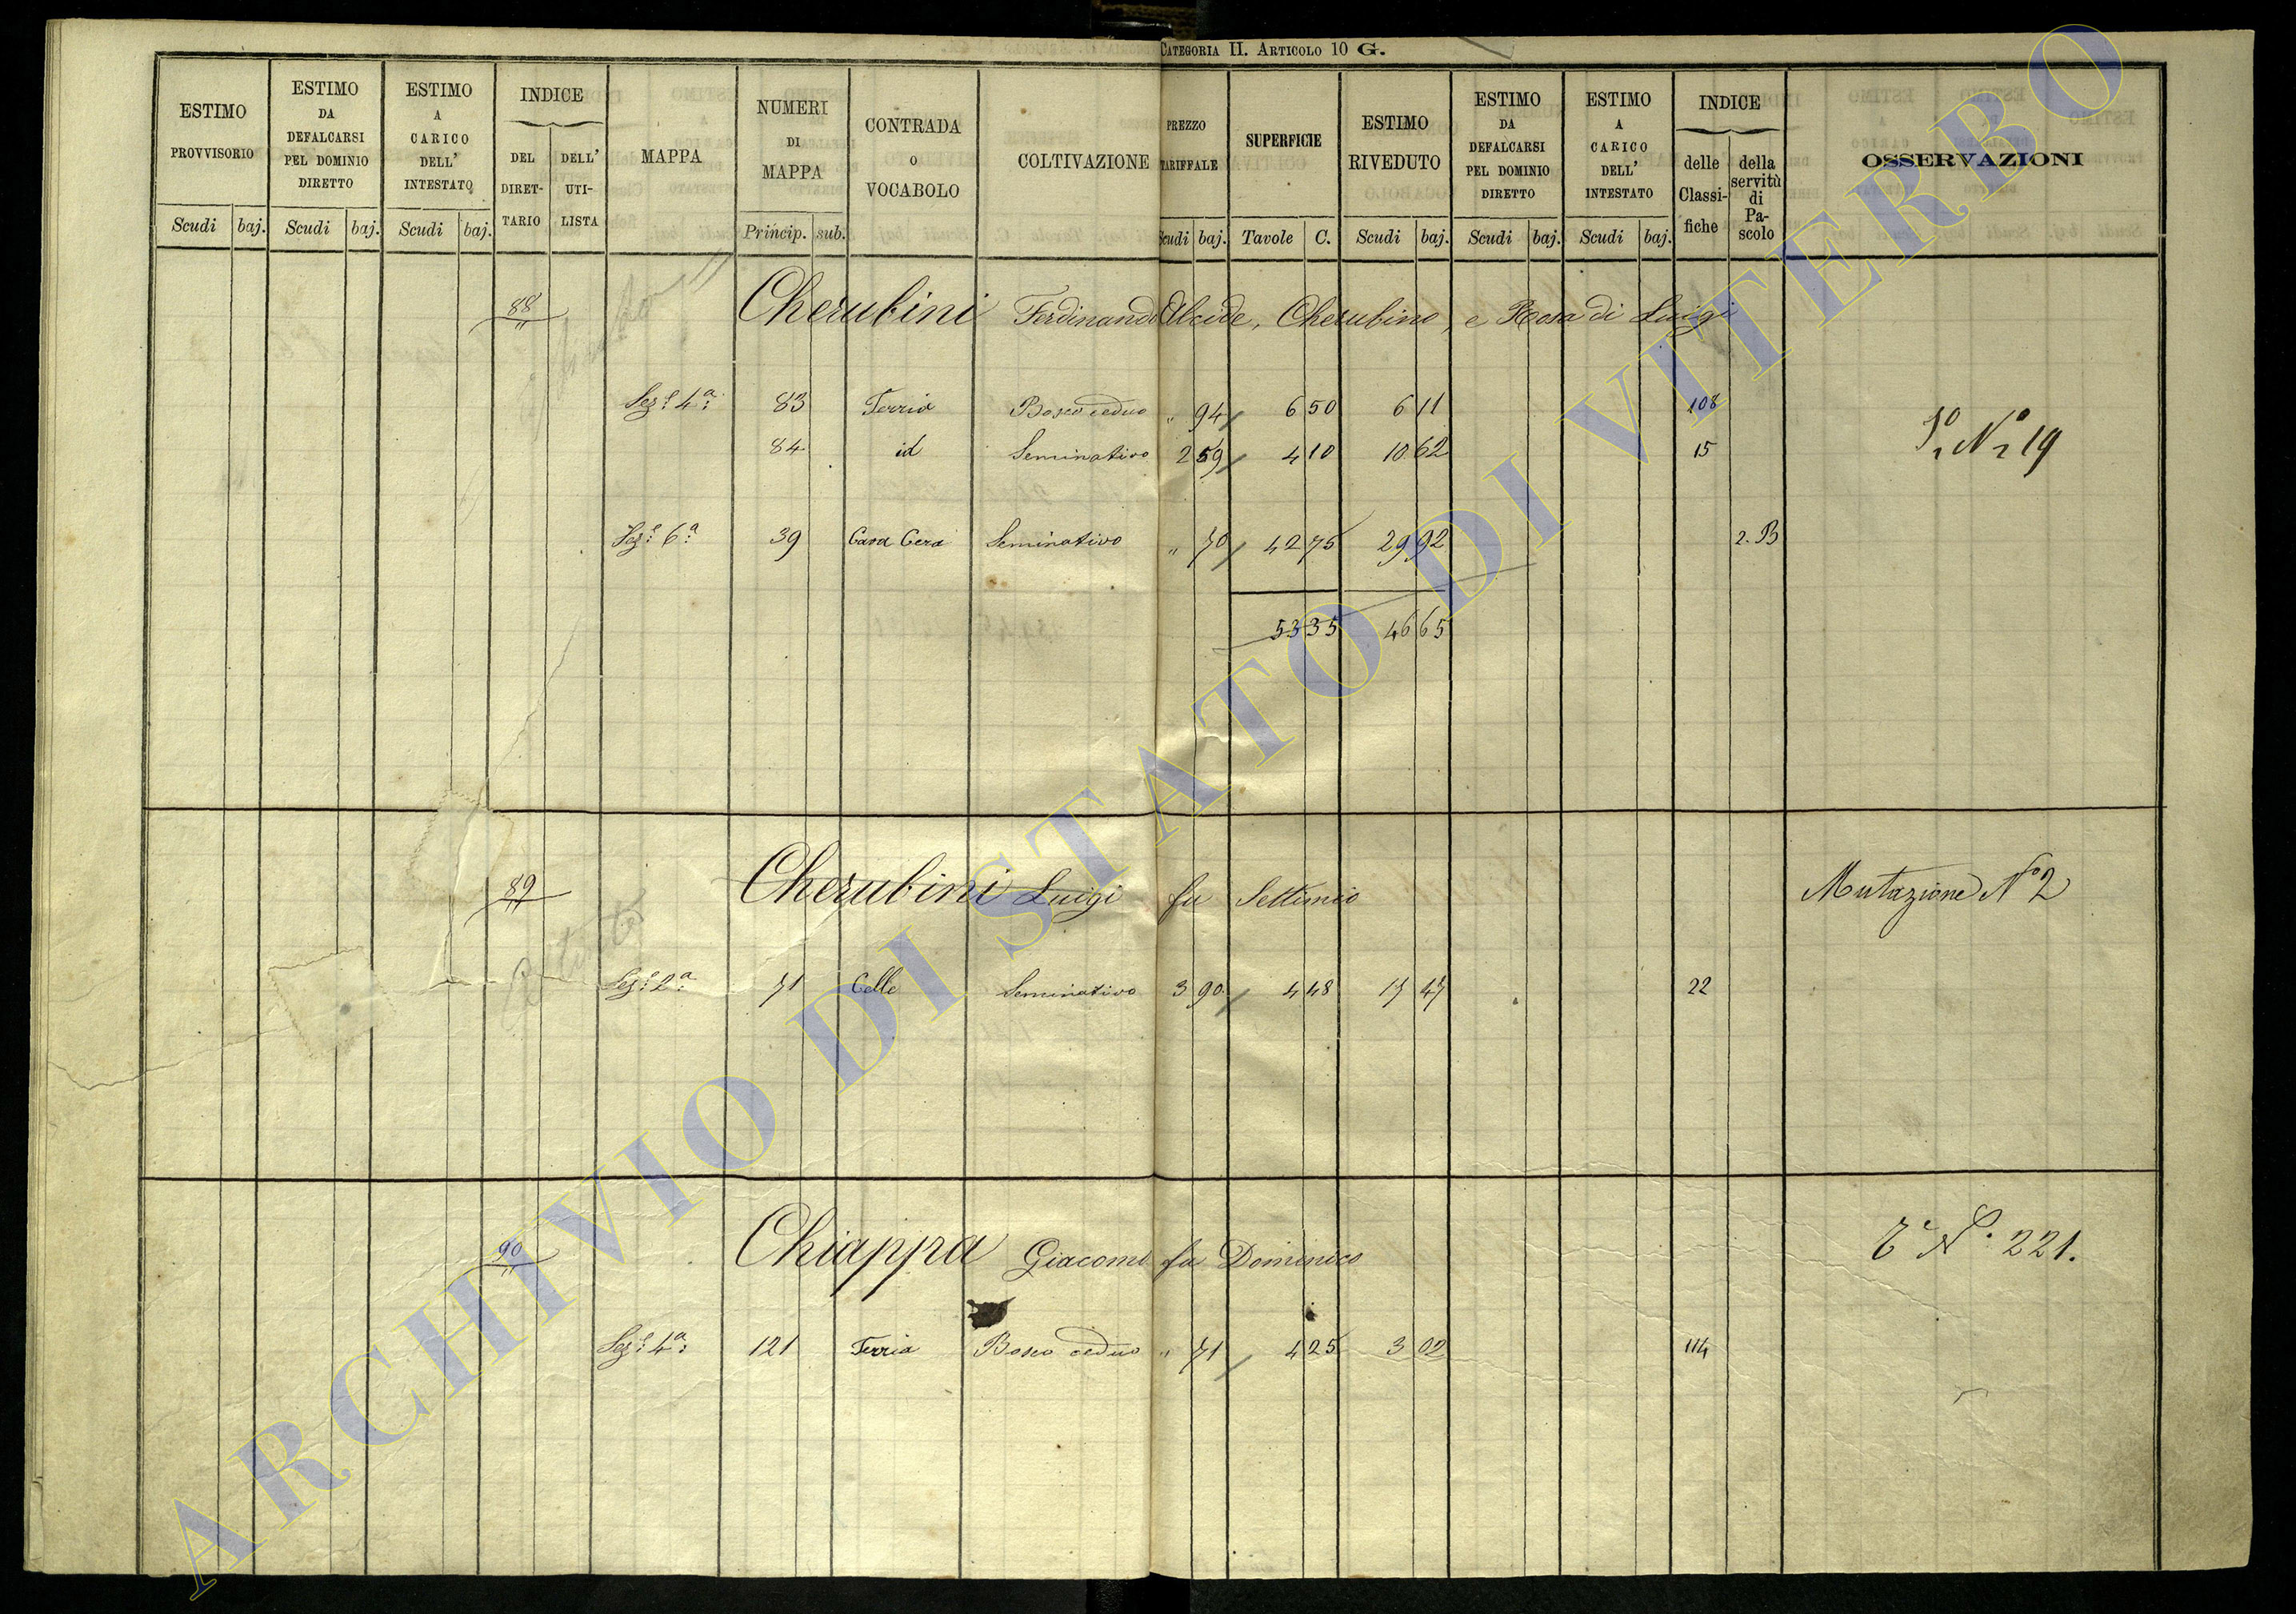 CATEGORIA II. ARTICOLO 10 G.
ESTIMO PROVVISORIO Scudi baj.
ESTIMO DA DEFALCARSI PEL DOMINIO DIRETTO Scudi baj.
ESTIMO A CARICO DELL' INTESTATO Scudi baj.
INDICE DEL DIRET-TARIO DELL' UTI-LISTA
MAPPA
NUMERI DI MAPPA Princip. sub.
CONTRADA O VOCABOLO
COLTIVAZIONE
PREZZO TARIFFALE Scudi baj.
SUPERFICIE Tavole C.
ESTIMO RIVEDUTO Scudi baj.
ESTIMO DA DEFALCARSI PEL DOMINIO DIRETTO Scudi baj.
ESTIMO A CARICO DELL' INTESTATO Scudi baj.
INDICE delle Classi-fiche della servitù di Pa-scolo
OSSERVAZIONI
88 Cherubini Ferdinando Alcide, Cherubino, e Rosa di Luigi
Sez.e 4a 83 Terria Bosco ceduo " 94 6 50 6 11 108
Nº 19
84 id Seminativo 2 59 4 10 10 62 15
Sez.e 6a 39 Seminativo " 70 42 75 29 92 2. B
53 35 46 65
89 Cherubini Luigi fu Settimio Mutazione Nº 2
Sez.e 2a 71 Celle Seminativo 3 90 4 48 17 47 22
90 Chiappa Giacomo fu Domenico N. 221.
Sez.e 4a 121 Terria Bosco ceduo " 71 4 25 3 02 114
ARCHIVIO DI STATO DI VITERBO